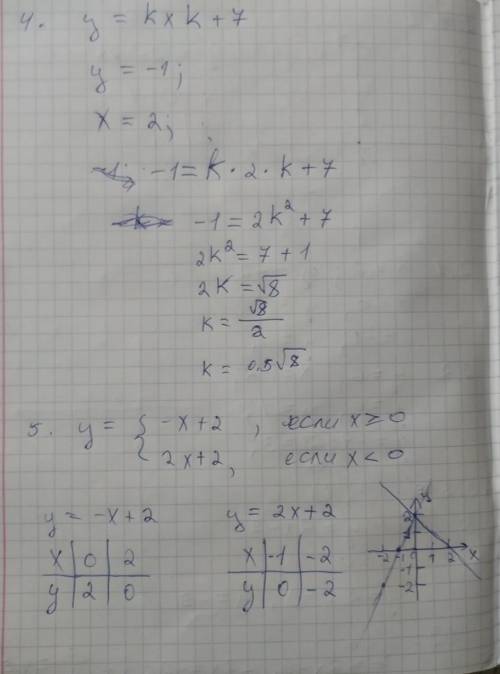 4. y = kxk + 7
y = -1;
x = 2;
-1 = k · 2 · k + 7
-1 = 2k² + 7
2k² = 7 + 1
2k = √8
k = √8/2
k = 0,5√8
5. y = { -x+2 , если x ≥ 0
{ 2x+2, если x < 0
y = -x+2 y = 2x+2
x | 0 | 2 x | -1 | -2
y | 2 | 0 y | 0 | -2
y
2
-2 -1 0 1 2 x
-1
-2